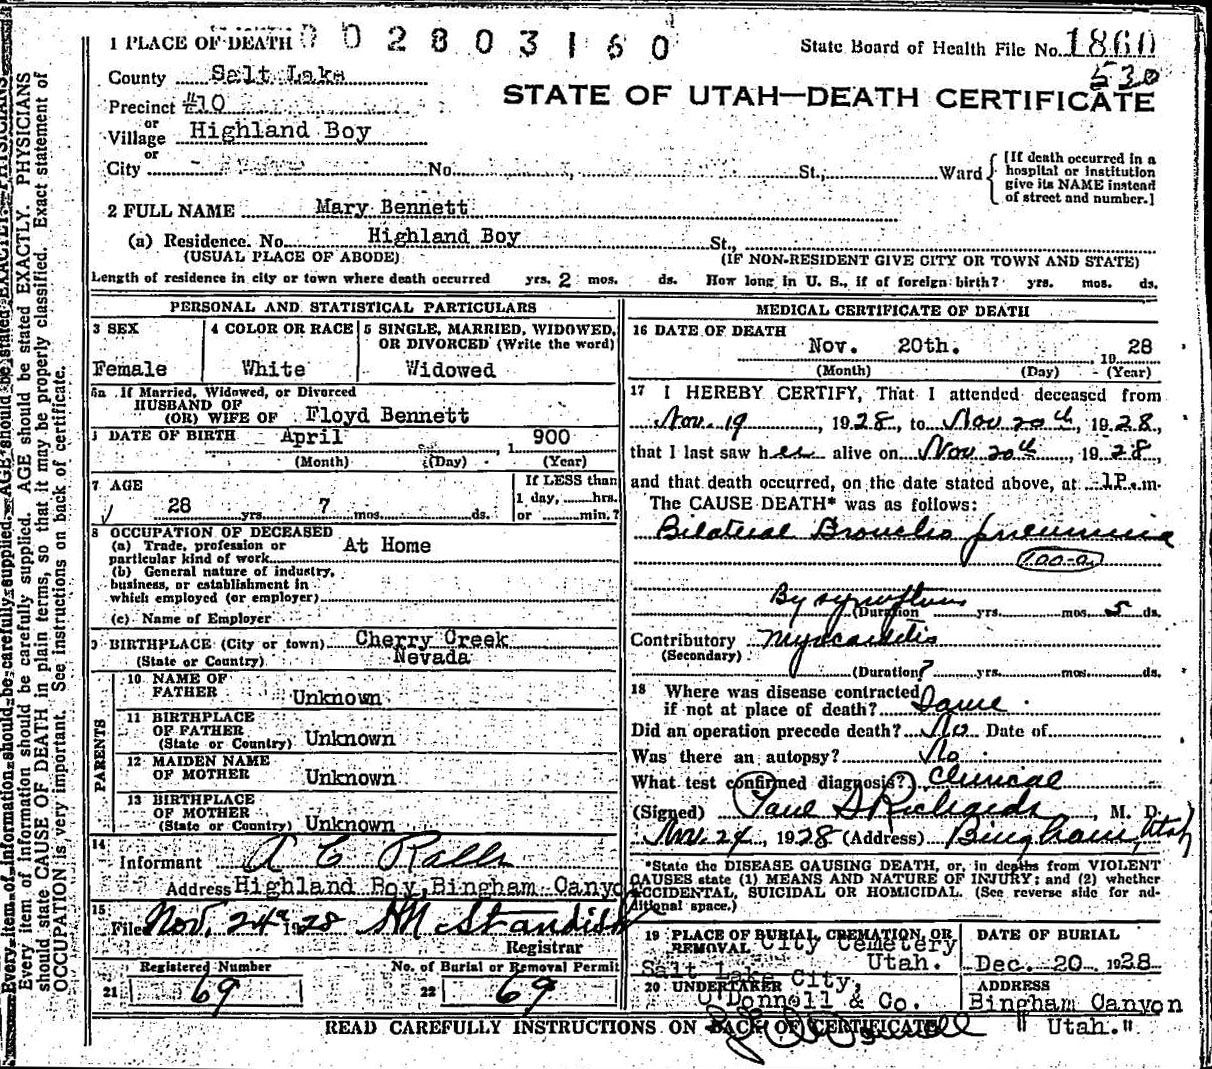 1 PLACE OF DEATH 0 0 2 8 0 3 1 6 0
State Board of Health File No. 1860
530
County Salt Lake
Precinct #10
STATE OF UTAH—DEATH CERTIFICATE
or
Village Highland Boy
or
City No. St., Ward
[If death occurred in a
hospital or institution
give its NAME instead
of street and number.]
2 FULL NAME Mary Bennett
(a) Residence. No. Highland Boy St.,
(USUAL PLACE OF ABODE) (IF NON-RESIDENT GIVE CITY OR TOWN AND STATE)
Length of residence in city or town where death occurred yrs. 2 mos. ds. How long in U. S., if of foreign birth? yrs. mos. ds.
PERSONAL AND STATISTICAL PARTICULARS
3 SEX 4 COLOR OR RACE 5 SINGLE, MARRIED, WIDOWED,
OR DIVORCED (Write the word)
Female White Widowed
5a If Married, Widowed, or Divorced
HUSBAND OF
(OR) WIFE OF Floyd Bennett
DATE OF BIRTH April , 1 900
(Month) (Day) (Year)
7 AGE
28 yrs. 7 mos. ds.
If LESS than
1 day, hrs.
or min.?
8 OCCUPATION OF DECEASED
(a) Trade, profession or
particular kind of work At Home
(b) General nature of industry,
business, or establishment in
which employed (or employer)
(c) Name of Employer
9 BIRTHPLACE (City or town) Cherry Creek
(State or Country) Nevada
PARENTS
10 NAME OF
FATHER Unknown
11 BIRTHPLACE
OF FATHER
(State or Country) Unknown
12 MAIDEN NAME
OF MOTHER Unknown
13 BIRTHPLACE
OF MOTHER
(State or Country) Unknown
14
Informant A C Ralls
Address Highland Boy, Bingham Canyo
15
File Nov. 24 1928 HM Standish
Registrar
Registered Number No. of Burial or Removal Permit
21 69 22 69
MEDICAL CERTIFICATE OF DEATH
16 DATE OF DEATH
Nov. 20th. , 19 28
(Month) (Day) (Year)
17 I HEREBY CERTIFY, That I attended deceased from
Nov. 19 , 1928, to Nov 20th, 1928,
that I last saw her alive on Nov 20th, 1928,
and that death occurred, on the date stated above, at 1P.m.
The CAUSE DEATH* was as follows:
Bilateral Broncho pneumonia
100-a
By symptoms
(Duration yrs. mos. 5 ds.
Contributory Myocarditis
(Secondary)
(Duration? yrs. mos. ds.
18 Where was disease contracted
if not at place of death? Same
Did an operation precede death? No Date of
Was there an autopsy? No
What test confirmed diagnosis? Clinical
(Signed) Paul S Richards, M. D.
Nov. 24, 1928 (Address) Bingham, Utah
*State the DISEASE CAUSING DEATH, or, in deaths from VIOLENT
CAUSES state (1) MEANS AND NATURE OF INJURY; and (2) whether
ACCIDENTAL, SUICIDAL OR HOMICIDAL. (See reverse side for ad-
ditional space.)
19 PLACE OF BURIAL, CREMATION, OR
REMOVAL City Cemetery
Utah.
Salt Lake City,
DATE OF BURIAL
Dec. 20 1928
20 UNDERTAKER
O'Donnell & Co.
ADDRESS
Bingham Canyon
" Utah."
READ CAREFULLY INSTRUCTIONS ON BACK OF CERTIFICATE
Every item of information should be carefully supplied. AGE should be stated EXACTLY. PHYSICIANS
should state CAUSE OF DEATH in plain terms, so that it may be properly classified. Exact statement of
OCCUPATION is very important. See instructions on back of certificate.